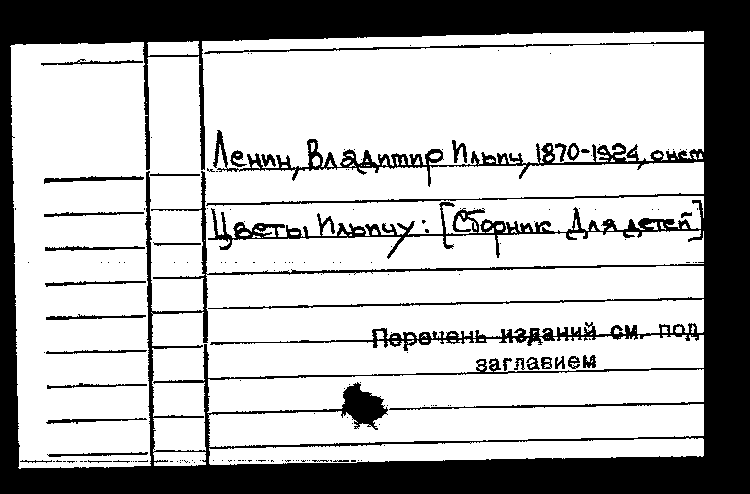 Ленин, Владимир Ильич, 1870-1924, о нем
Цветы Ильичу: [Сборник для детей]
Перечень изданий см. под
заглавием